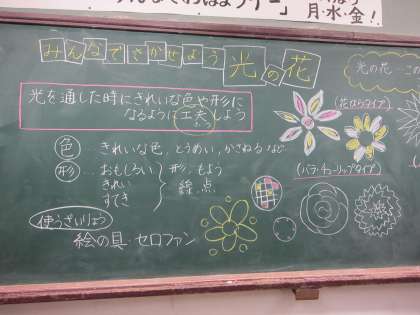 月・水・金!
みんなでさかせよう 光の花
光の花
光を通した時にきれいな色や形に
なるように工夫しよう
(花びらタイプ)
色 … きれいな色、とうめい、かさねる など
形 … おもしろい
きれい
すてき
形、もよう
線、点
(バラ・チューリップタイプ)
使うざいりょう
絵の具・セロファン